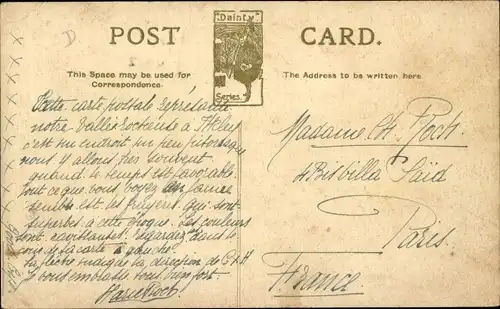 POST CARD.
"Dainty"
Series.
This Space may be used for
Correspondence.
The Address to be written here
Cette carte postale représente
notre Vallée rocheuse à
c'est un endroit un peu pittoresque
nous y allons très souvent
quand le temps est favorable.
Tout ce que vous voyez en jaune
sont les bruyères qui sont
superbes à cette époque. Les couleurs
sont Regardez dans le
coin de la carte à gauche
la flèche indique la direction de
Je vous embrasse tous bien fort.
Roch
Madame Ch. Roch
4 Bis Villa Saïd
Paris.
France.